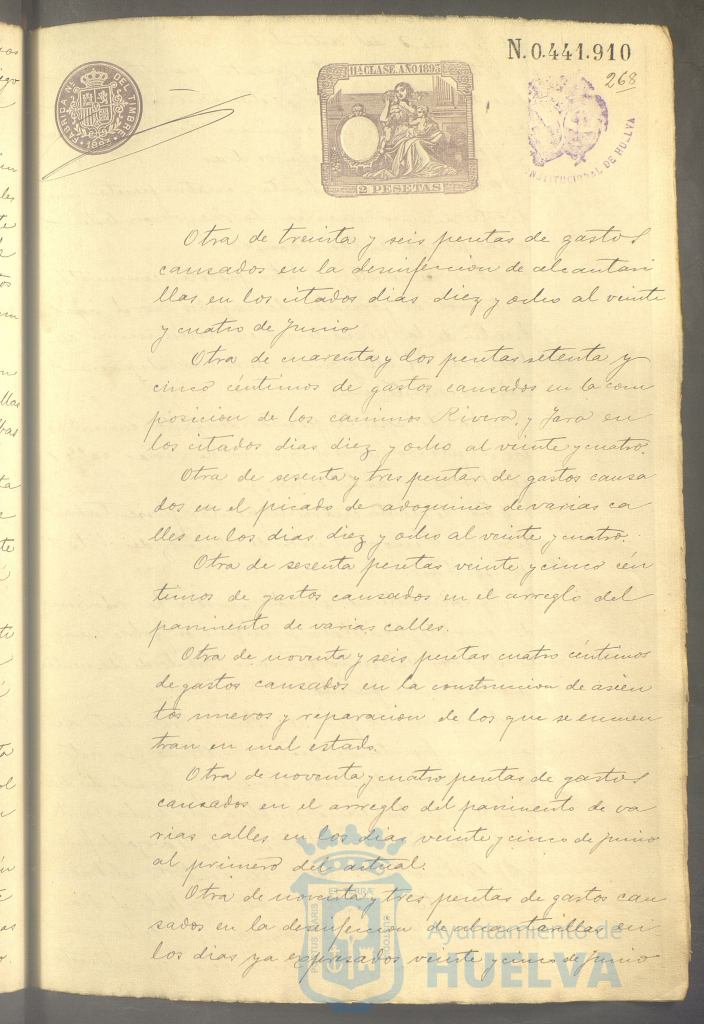 N.0.441.910
268
11ª CLASE. AÑO 1893
2 PESETAS
FABRICA Nal. DEL TIMBRE
1893
CONSTITUCIONAL DE HUELVA
Otra de treinta y seis pesetas de gastos
causados en la desinfeccion de alcantari
llas en los citados dias diez y ocho al veinte
y cuatro de Junio
Otra de cuarenta y dos pesetas setenta y
cinco céntimos de gastos causados en la com
posicion de los caminos Rivera, y Jara en
los citados dias diez y ocho al veinte y cuatro.
Otra de sesenta y tres pesetas de gastos causa
dos en el picado de adoquines de varias ca
lles en los dias diez y ocho al veinte y cuatro.
Otra de sesenta pesetas veinte y cinco cén
timos de gastos causados en el arreglo del
pavimento de varias calles.
Otra de noventa y seis pesetas cuatro céntimos
de gastos causados en la construccion de asien
tos nuevos y reparacion de los que se encuen
tran en mal estado.
Otra de noventa y cuatro pesetas de gastos
causados en el arreglo del pavimento de va
rias calles en los dias veinte y cinco de Junio
al primero del actual.
Otra de noventa y tres pesetas de gastos cau
sados en la desinfeccion de alcantarillas en
los dias ya expresados veinte y cinco de Junio
PORTUS MARIS ET TERRÆ CUSTODIA
Ayuntamiento de
HUELVA